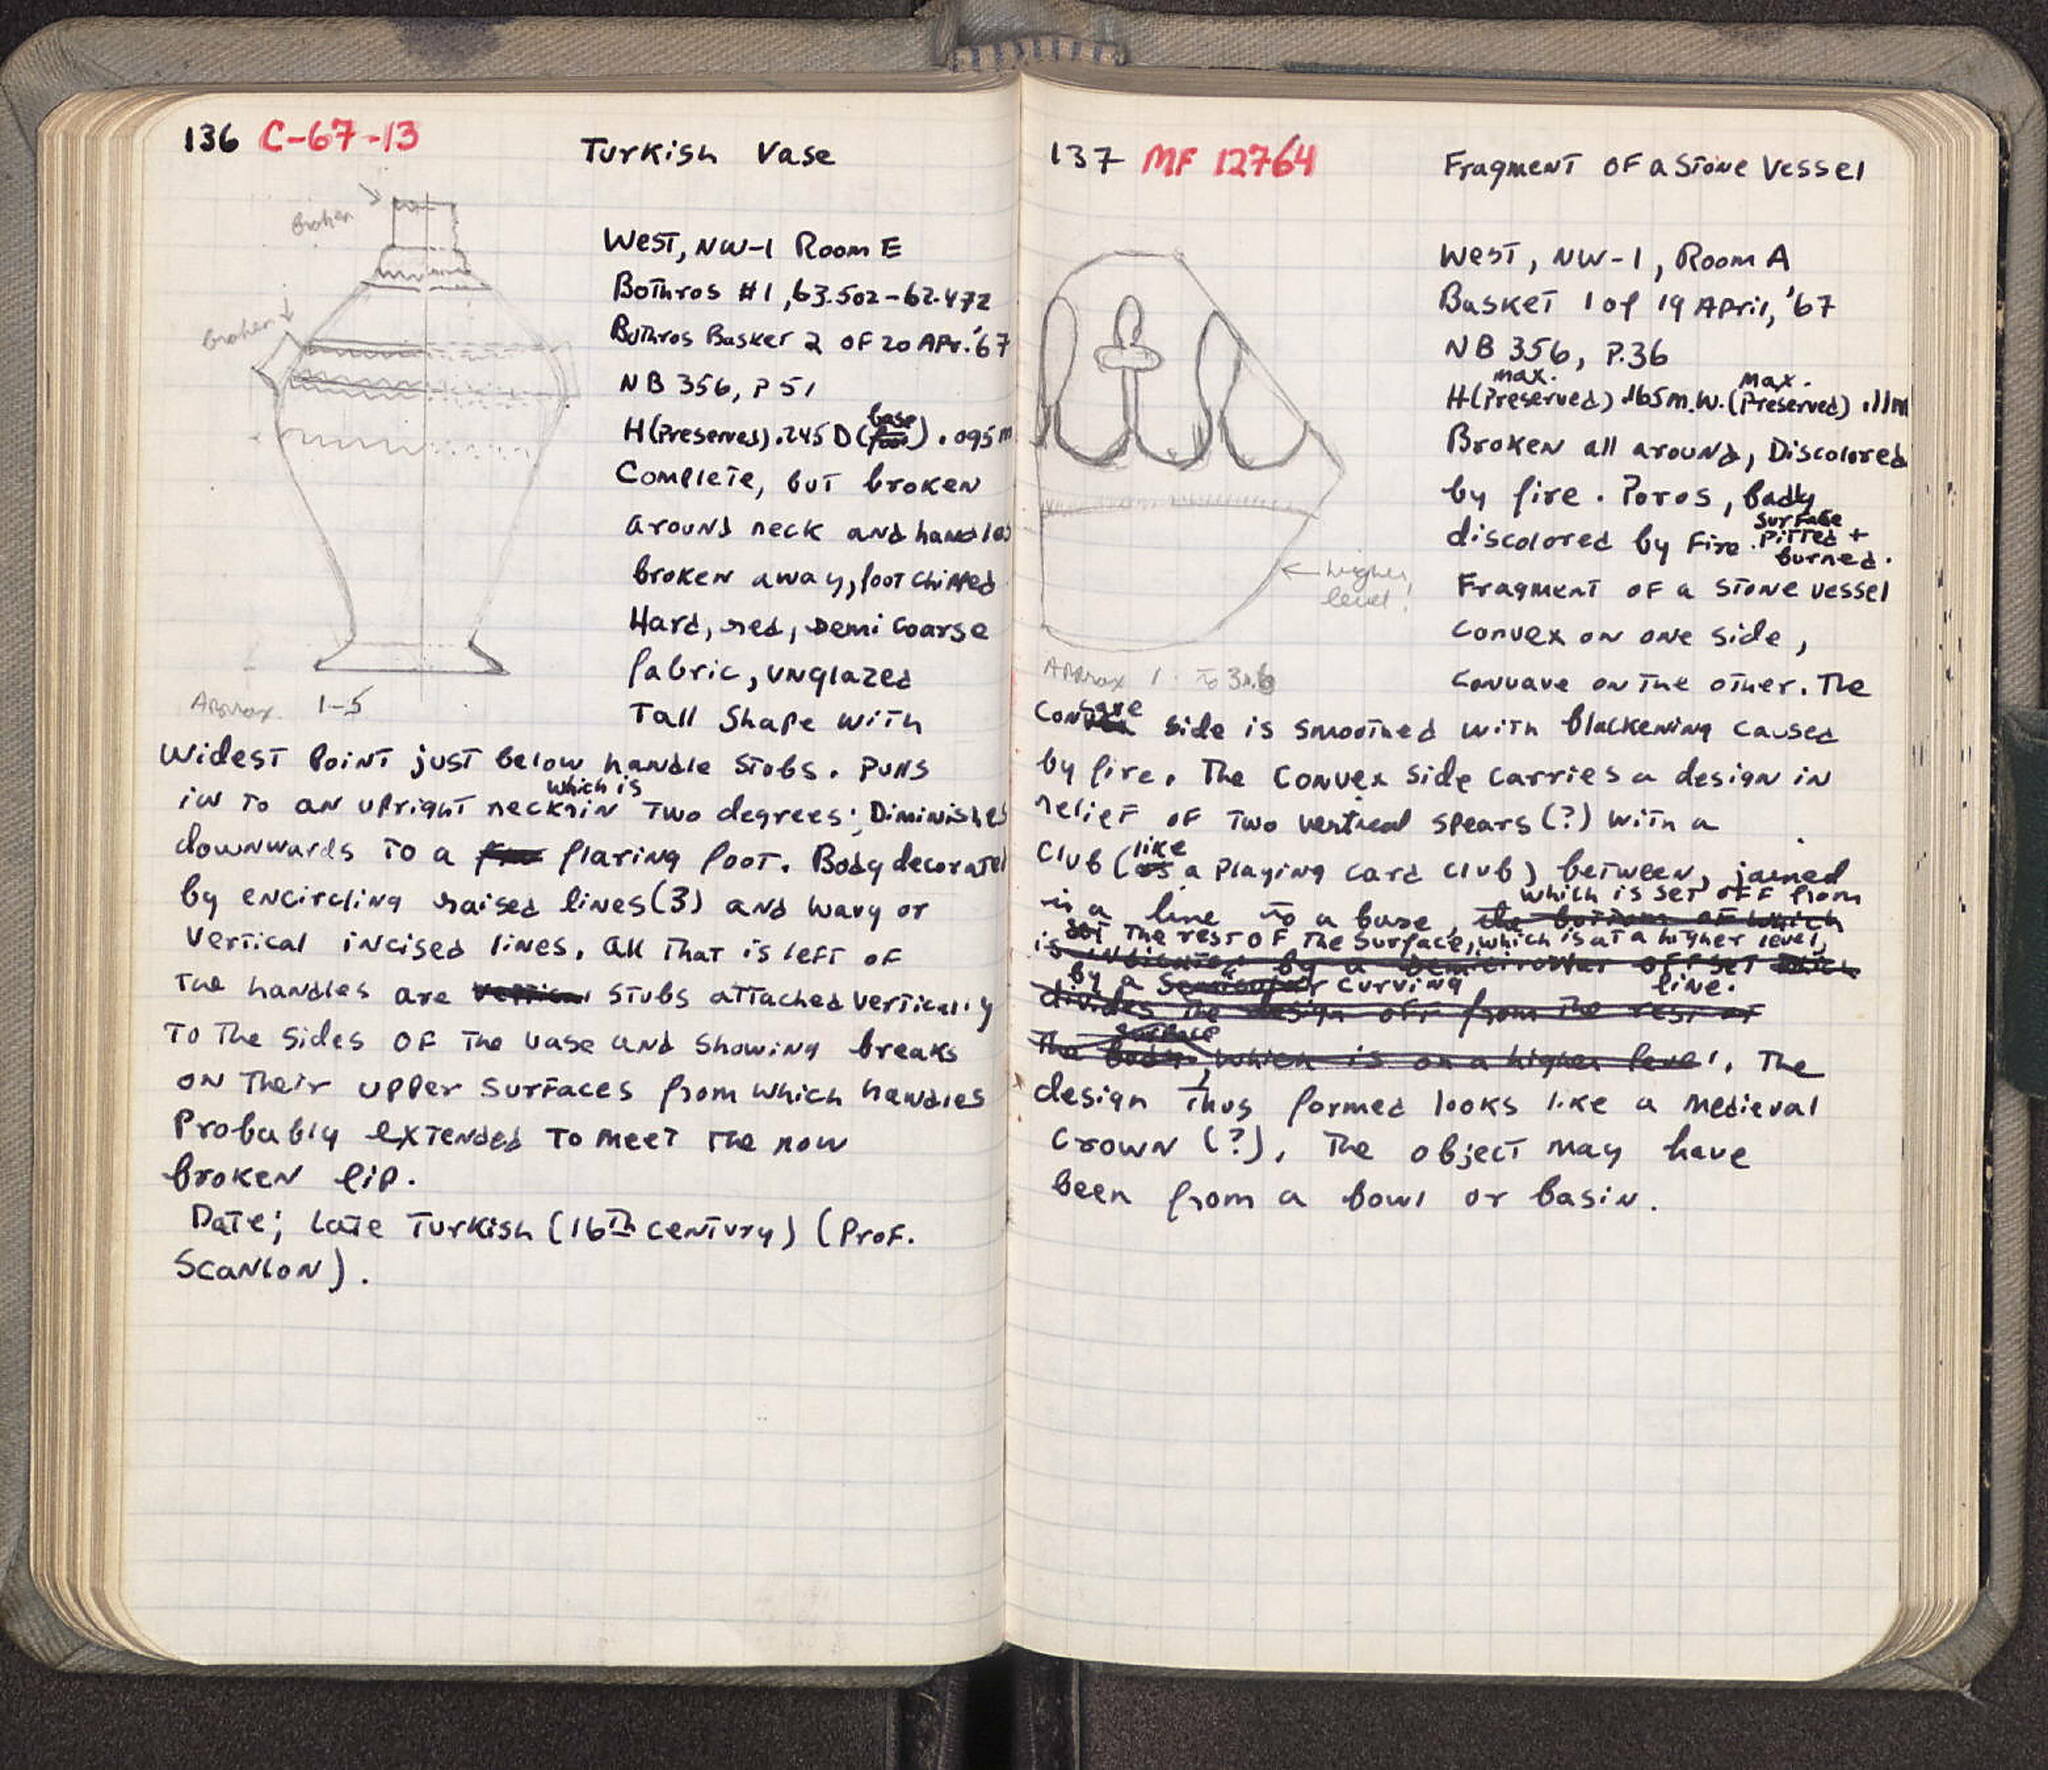 136 C-67-13 Turkish Vase
broken
broken
West, NW-1 Room E
Bothros #1, 63.502-62.472
Bothros Basket 2 of 20 Apr. '67
NB 356, P 51
H (Preserved) .245 D (foot base) .095 m
Complete, but broken
around neck and handles
broken away, foot chipped
Hard, red, Demi coarse
fabric, unglazed
Tall shape with
Approx. 1-5
widest point just below handle stobs. Pulls
in to an upright neck which is in two degrees; Diminishes
downwards to a flaring foot. Body decorated
by encircling raised lines (3) and wavy or
vertical incised lines. All that is left of
the handles are vertical stubs attached vertically
to the sides of the vase and showing breaks
on their upper surfaces from which handles
probably extended to meet the now
broken lip.
Date; late Turkish (16th century) (Prof.
Scanlon).
137 MF 12764 Fragment of a Stone Vessel
West, NW-1, Room A
Basket 1 of 19 April, '67
NB 356, P.36
H (max. Preserved) .165 m. W. (max. Preserved) .11 m
Broken all around, Discolored
by fire. Poros, badly
discolored by Fire. surface pitted + burned.
Fragment of a stone vessel
convex on one side,
concave on the other. The
higher level!
Approx 1 to 3
concave side is smoothed with blackening caused
by fire. The convex side carries a design in
relief of two vertical spears (?) with a
club (as like a playing card club) between, joined
in a line to a base, the bottom of which
which is set off from
set the rest of the surface, which is at a higher level,
is indicated by a semicircular offset which
by a semicircular curving line.
divides the design off from the rest of
the body, surface which is on a higher level. The
design thus formed looks like a medieval
crown (?). The object may have
been from a bowl or basin.